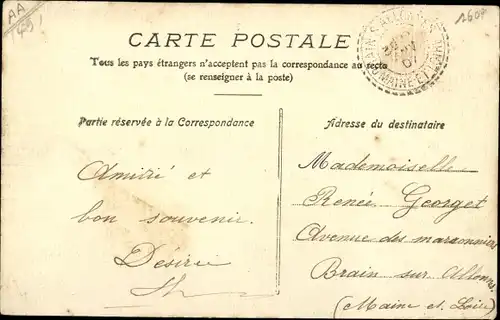 AA
CARTE POSTALE
Tous les pays étrangers n'acceptent pas la correspondance au recto
(se renseigner à la poste)
Partie réservée à la Correspondance
Amitié et
bon souvenir.
Désirée
Adresse du destinataire
Mademoiselle
Renée Georget
Avenue des maronniers
Brain sur Allonnes
(Maine et Loire)